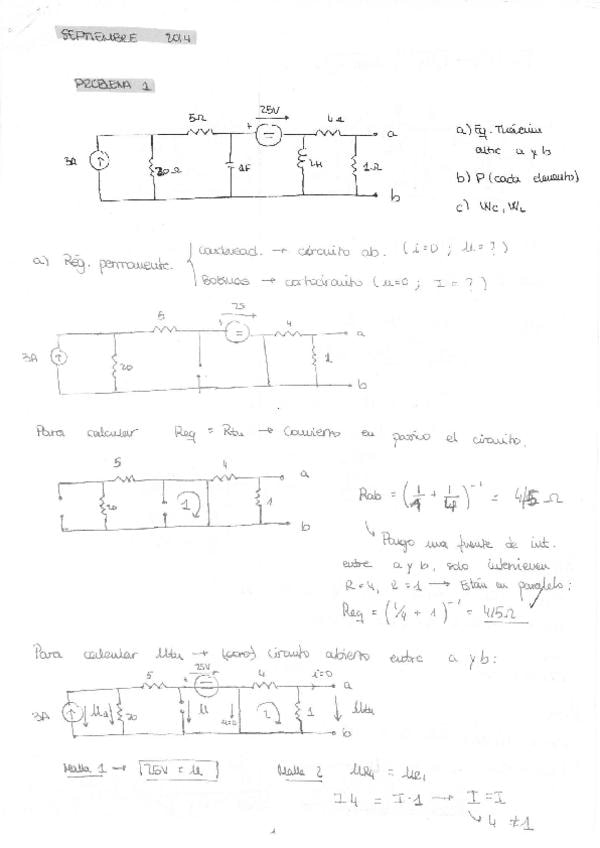 SEPTIEMBRE 2014
PROBLEMA 1
5Ω
25V
4Ω
+
a
3A
20Ω
1F
2H
1Ω
b
a) Eq. Thévenin
entre a y b
b) P (cada elemento)
c) Wc, WL
a) Rég. permanente.
→ circuito ab. (i=0 ; u=?)
Bobinas → cortocircuito (u=0 ; I=?)
5
25
4
a
3A
20
1
b
Para calcular Req = RTh → Convierto en pasivo el circuito.
5
4
a
20
1
1
b
Rab = (1/1 + 1/4)⁻¹ = 4/5 Ω
Pongo una fuente de int.
entre a y b, solo intervienen
R=4, R=1 → Están en paralelo;
Req = (1/4 + 1)⁻¹ = 4/5Ω
Para calcular UTh → circuito abierto entre a y b:
5
25V
4
i=0
a
3A
20
u
u=0
2
1
UTh
b
Malla 1 → 25V = u
Malla 2 UR4 = UR1
I4 = I·1 → I=I
4 ≠ 1
1